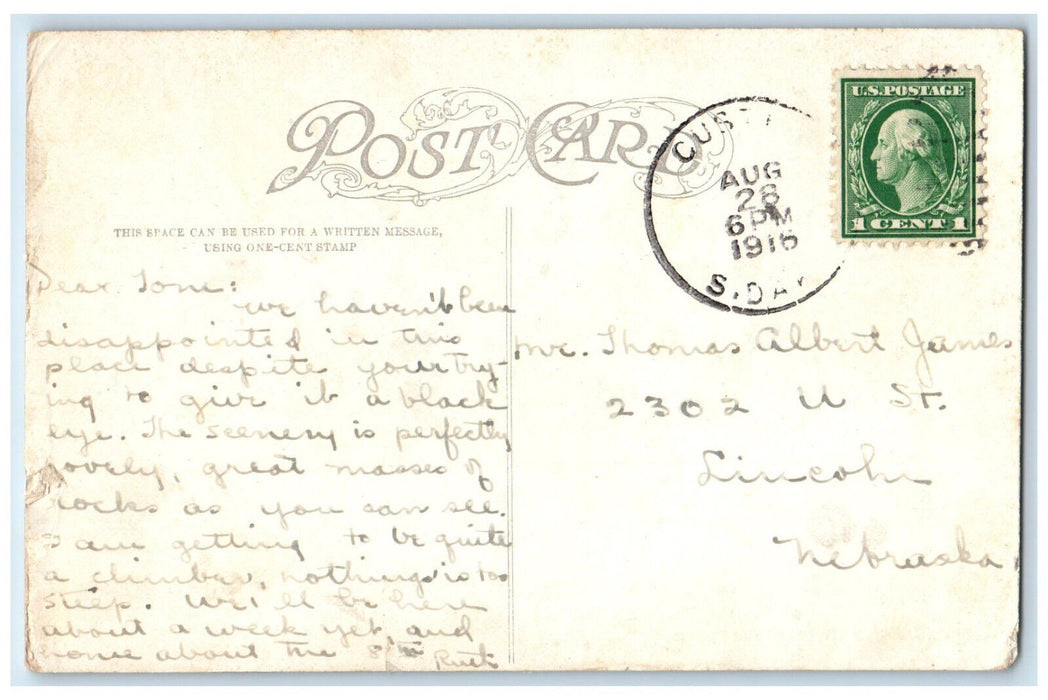 POST CARD
THIS SPACE CAN BE USED FOR A WRITTEN MESSAGE,
USING ONE-CENT STAMP
CUST
AUG
28
6 PM
1916
S. DAK
U.S. POSTAGE
1 CENT 1
Dear Tom:
We haven't been
disappointed in this
place despite your try-
ing to give it a black
eye. The scenery is perfectly
lovely, great masses of
rocks as you can see.
I am getting to be quite
a climber, nothing is too
steep. We'll be here
about a week yet, and
home about the 8th
Ruth
Mr. Thomas Albert James
2302 U St.
Lincoln
Nebraska